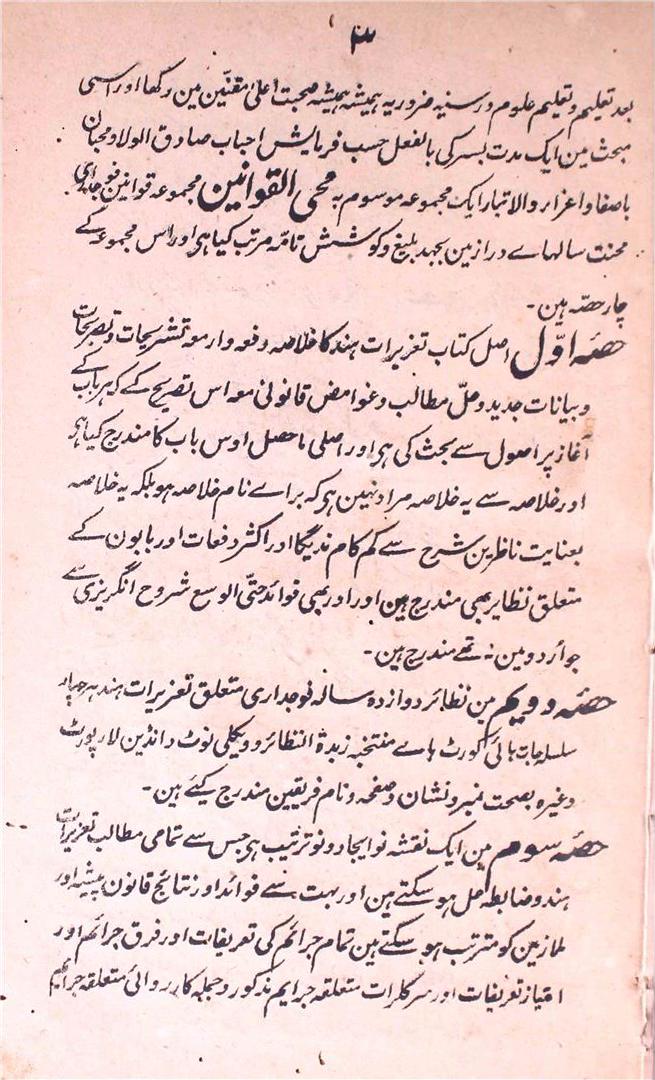 ۳
بعد تعلیم و تعلیم علوم درسیہ ضروریہ ہمیشہ ہمیشہ صحبت اعلیٰ مقنّین مین رکھا اور اسی
مبحث مین ایک مدت بسر کی بالفعل حسب فرمایش احباب صادق الولا و محبان
باصفا و اعزار والاتبار ایک مجموعہ موسوم بہ محی القوانین مجموعہ قوانین فوجداری
محنت سالہاے دراز مین بجہد بلیغ و کوشش تامہ مرتب کیا ہی اور اس مجموعہ کے
چار حصّہ ہین۔
حصّہ اوّل اصل کتاب تعزیرات ہند کا خلاصہ دفعہ وار معہ تشریحات و تصریحات
و بیانات جدید و حلّ مطالب و غوامض قانونی معہ اس تصریح کے کہ ہر باب کے
آغاز پر اصول سے بحث کی ہی اور اصلی ماحصل اوس باب کا مندرج کیا ہی
اور خلاصہ سے یہ خلاصہ مراد نہین ہی کہ براے نام خلاصہ ہو بلکہ یہ خلاصہ
بعنایت ناظرین شرح سے کم کام ندیگا اور اکثر دفعات اور بابون کے
متعلق نظایر بھی مندرج ہین اور اور بھی فوائد حتّی الوسع شروح انگریزی سے
جو اردو مین نہ تھے مندرج ہین۔
حصّہ دویم مین نظائر دوازدہ سالہ فوجداری متعلق تعزیرات ہند ہر چہار
سلسلہ جات ہائی کورٹ ہاے منتخبہ زبدۃ النظائر و ویکلی نوٹ و انڈین لا رپورٹ
وغیرہ بصحت نمبر و نشان و صفحہ و نام فریقین مندرج کیے ہین۔
حصّہ سوم مین ایک نقشہ نو ایجاد و نو ترتیب ہی جس سے تمامی مطالب تعزیرات
ہند و ضابطہ حل ہو سکتے ہین اور بہت سے فوائد اور نتائج قانون پیشہ اور
ملازمین کو مترتب ہو سکتے ہین تمام جرائم کی تعریفات اور فرق جرائم اور
امتیاز تعریفات اور سرکلرات متعلقہ جرایم مذکور و جملہ کارروائی متعلقہ جرائم